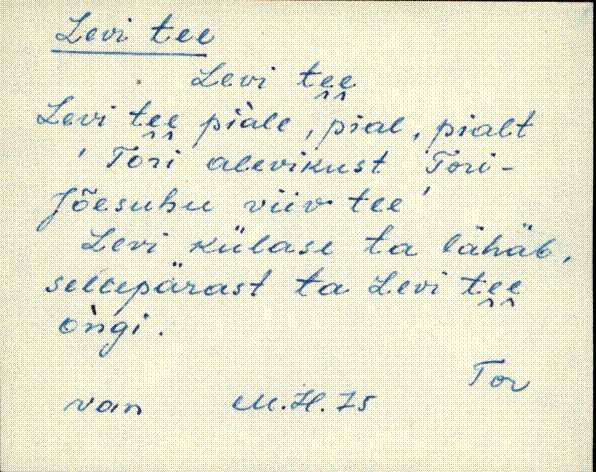 Levi tee
Levi te̯e̯
Levi te̯e̯ piàle, pial, pialt
' Tori alevikust Tori-
Jõesuhu viiv tee '
Levi külase ta lähäb,
sellepärast ta Levi te̯e̯
òngi.
Tor
van M.H. 75